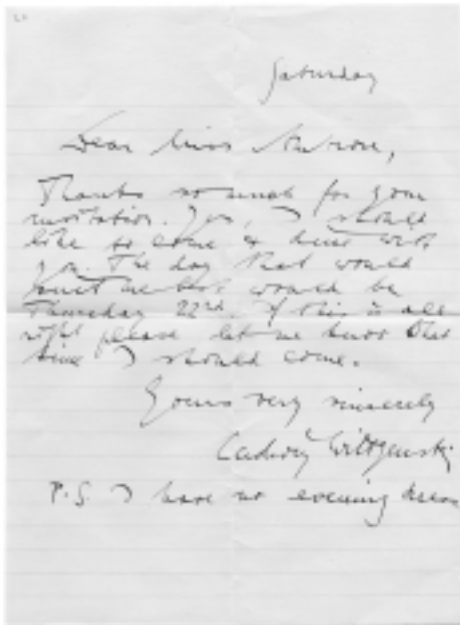 Saturday
Dear Miss
Thanks so much for your
invitation. Yes, I should
like to come & dine with
you. The day that would
suit me best would be
Thursday 22nd. If this is all
right please let me know what
time I should come.
Yours very sincerely
Ludwig Wittgenstein
P.S. I have no evening dress